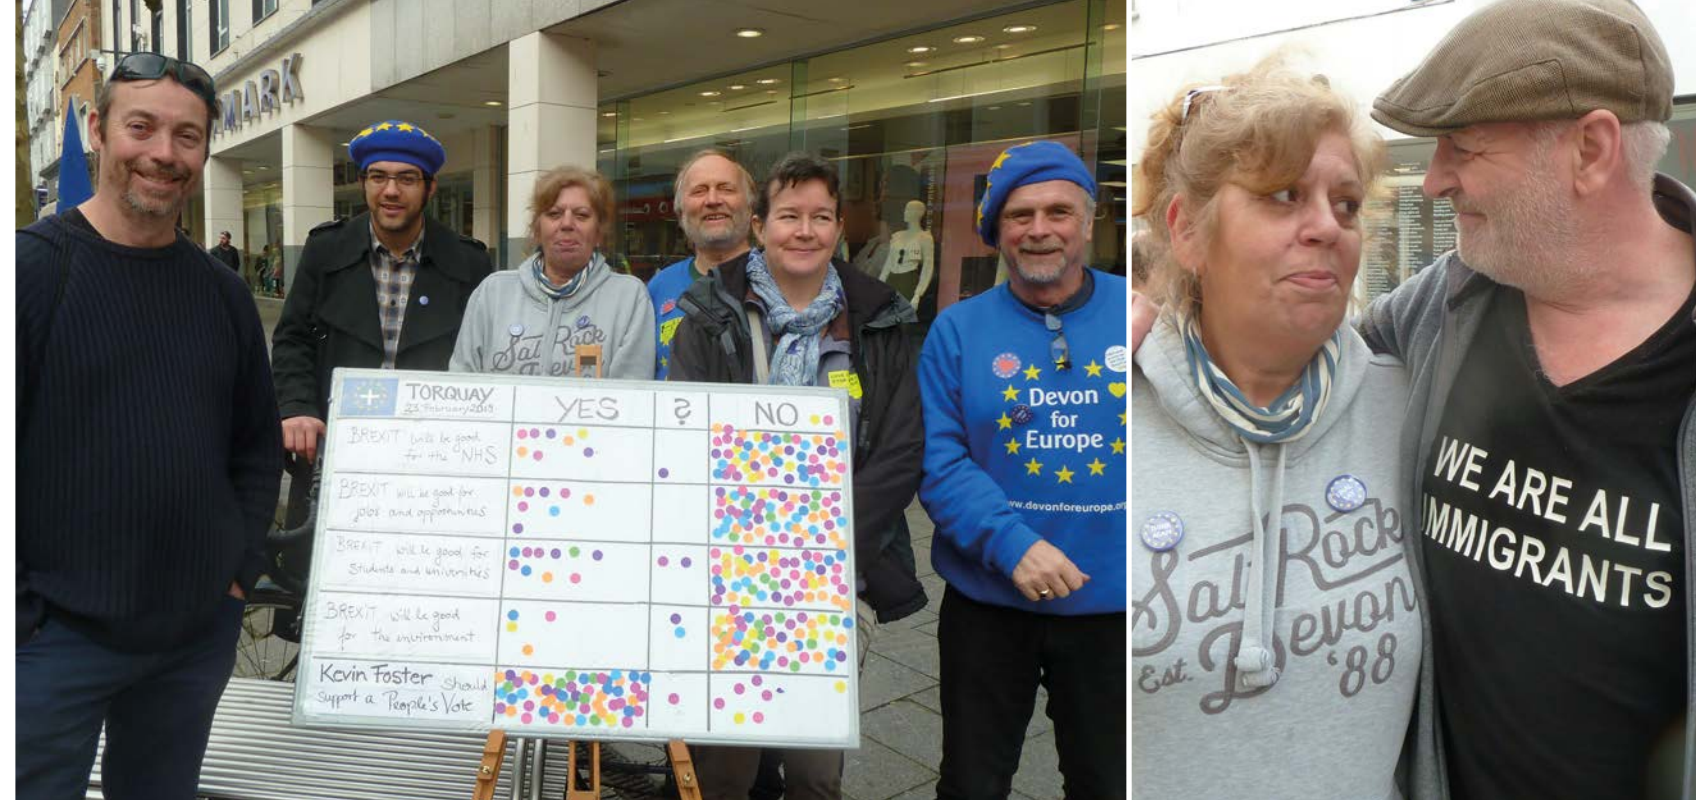 MARK
TORQUAY
23 February 2019
YES
?
NO
BREXIT will be good
for the NHS
BREXIT will be good for
jobs and opportunities
BREXIT will be good for
Students and universities
BREXIT will be good
for the environment
Kevin Foster should
support a People's Vote
Salt Rock
Devon
Devon
for
Europe
www.devonforeurope.org
Salt Rock
Devon
Est. '88
WE ARE ALL
IMMIGRANTS